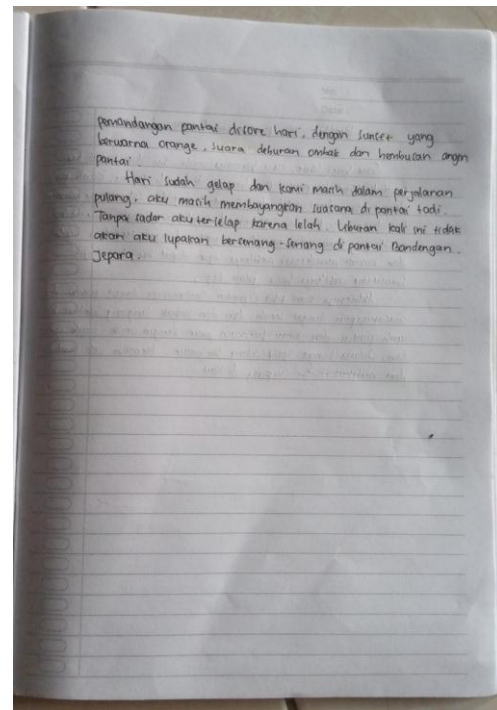 No :
Date :
pemandangan pantai disore hari, dengan sunset yang
berwarna orange, suara deburan ombak dan hembusan angin
pantai.
Hari sudah gelap dan kami masih dalam perjalanan
pulang, aku masih membayangkan suasana di pantai tadi.
Tanpa sadar aku terlelap karena lelah. Liburan kali ini tidak
akan aku lupakan bersenang-senang di pantai Bandengan.
Jepara.